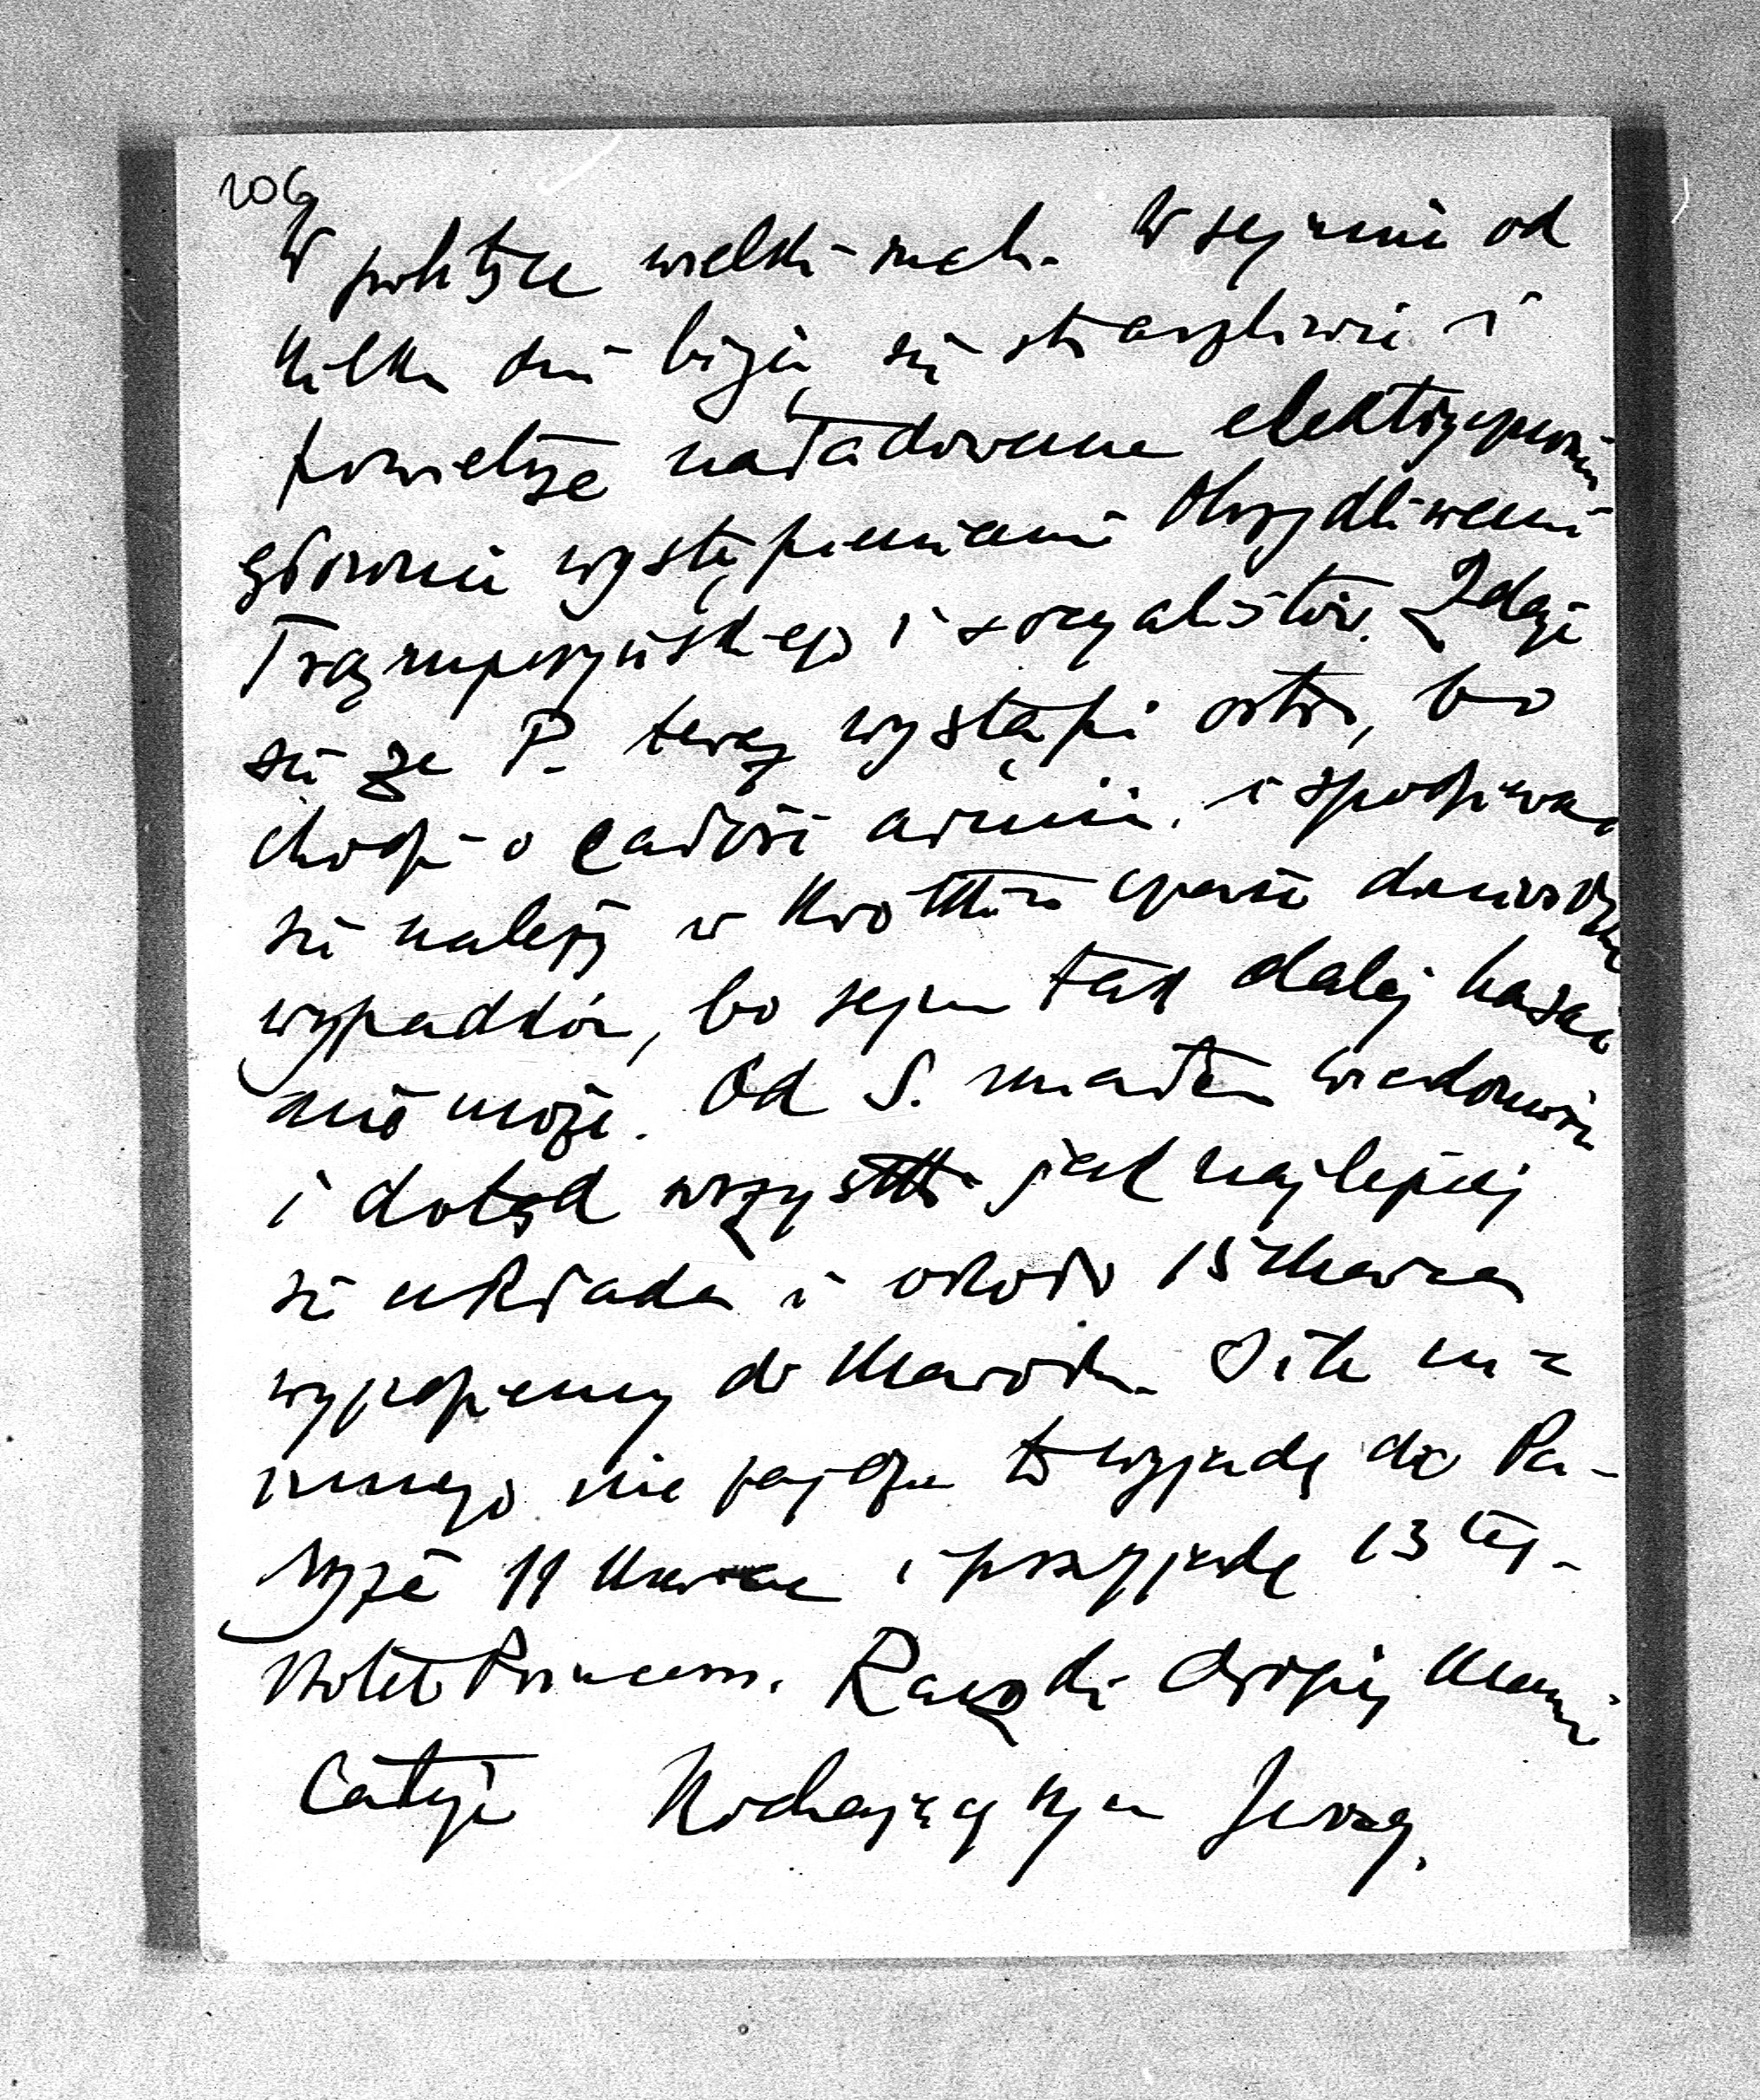 206
W polityce wielki ruch. W sejmie od
kilku dni biją się straszliwie i
powietrze naładowane elektrycznością
głównie wystąpieniami obrzydliwemi
Trąmpczyńskiego i socyalistów. Zdaje
się że P. teraz wystąpi ostro, bo
chodzi o całość armii, i spodziewać
się należy w krótkim czasie doniosłych
wypadków, bo sejm tak dalej hasać
nie może. Od S. miałem wiadomość
i dotąd wszystko jak najlepiej
się układa i około 15 Marca
wyjedziemy do Maroku. O ile nic
innego nie zajdzie to wyjadę do Pa-
ryża 11 Marca i przyjadę 13 tej-
Hotel Princess. Rączki drogiej Mamy
całuję Kochający syn Jerzy.